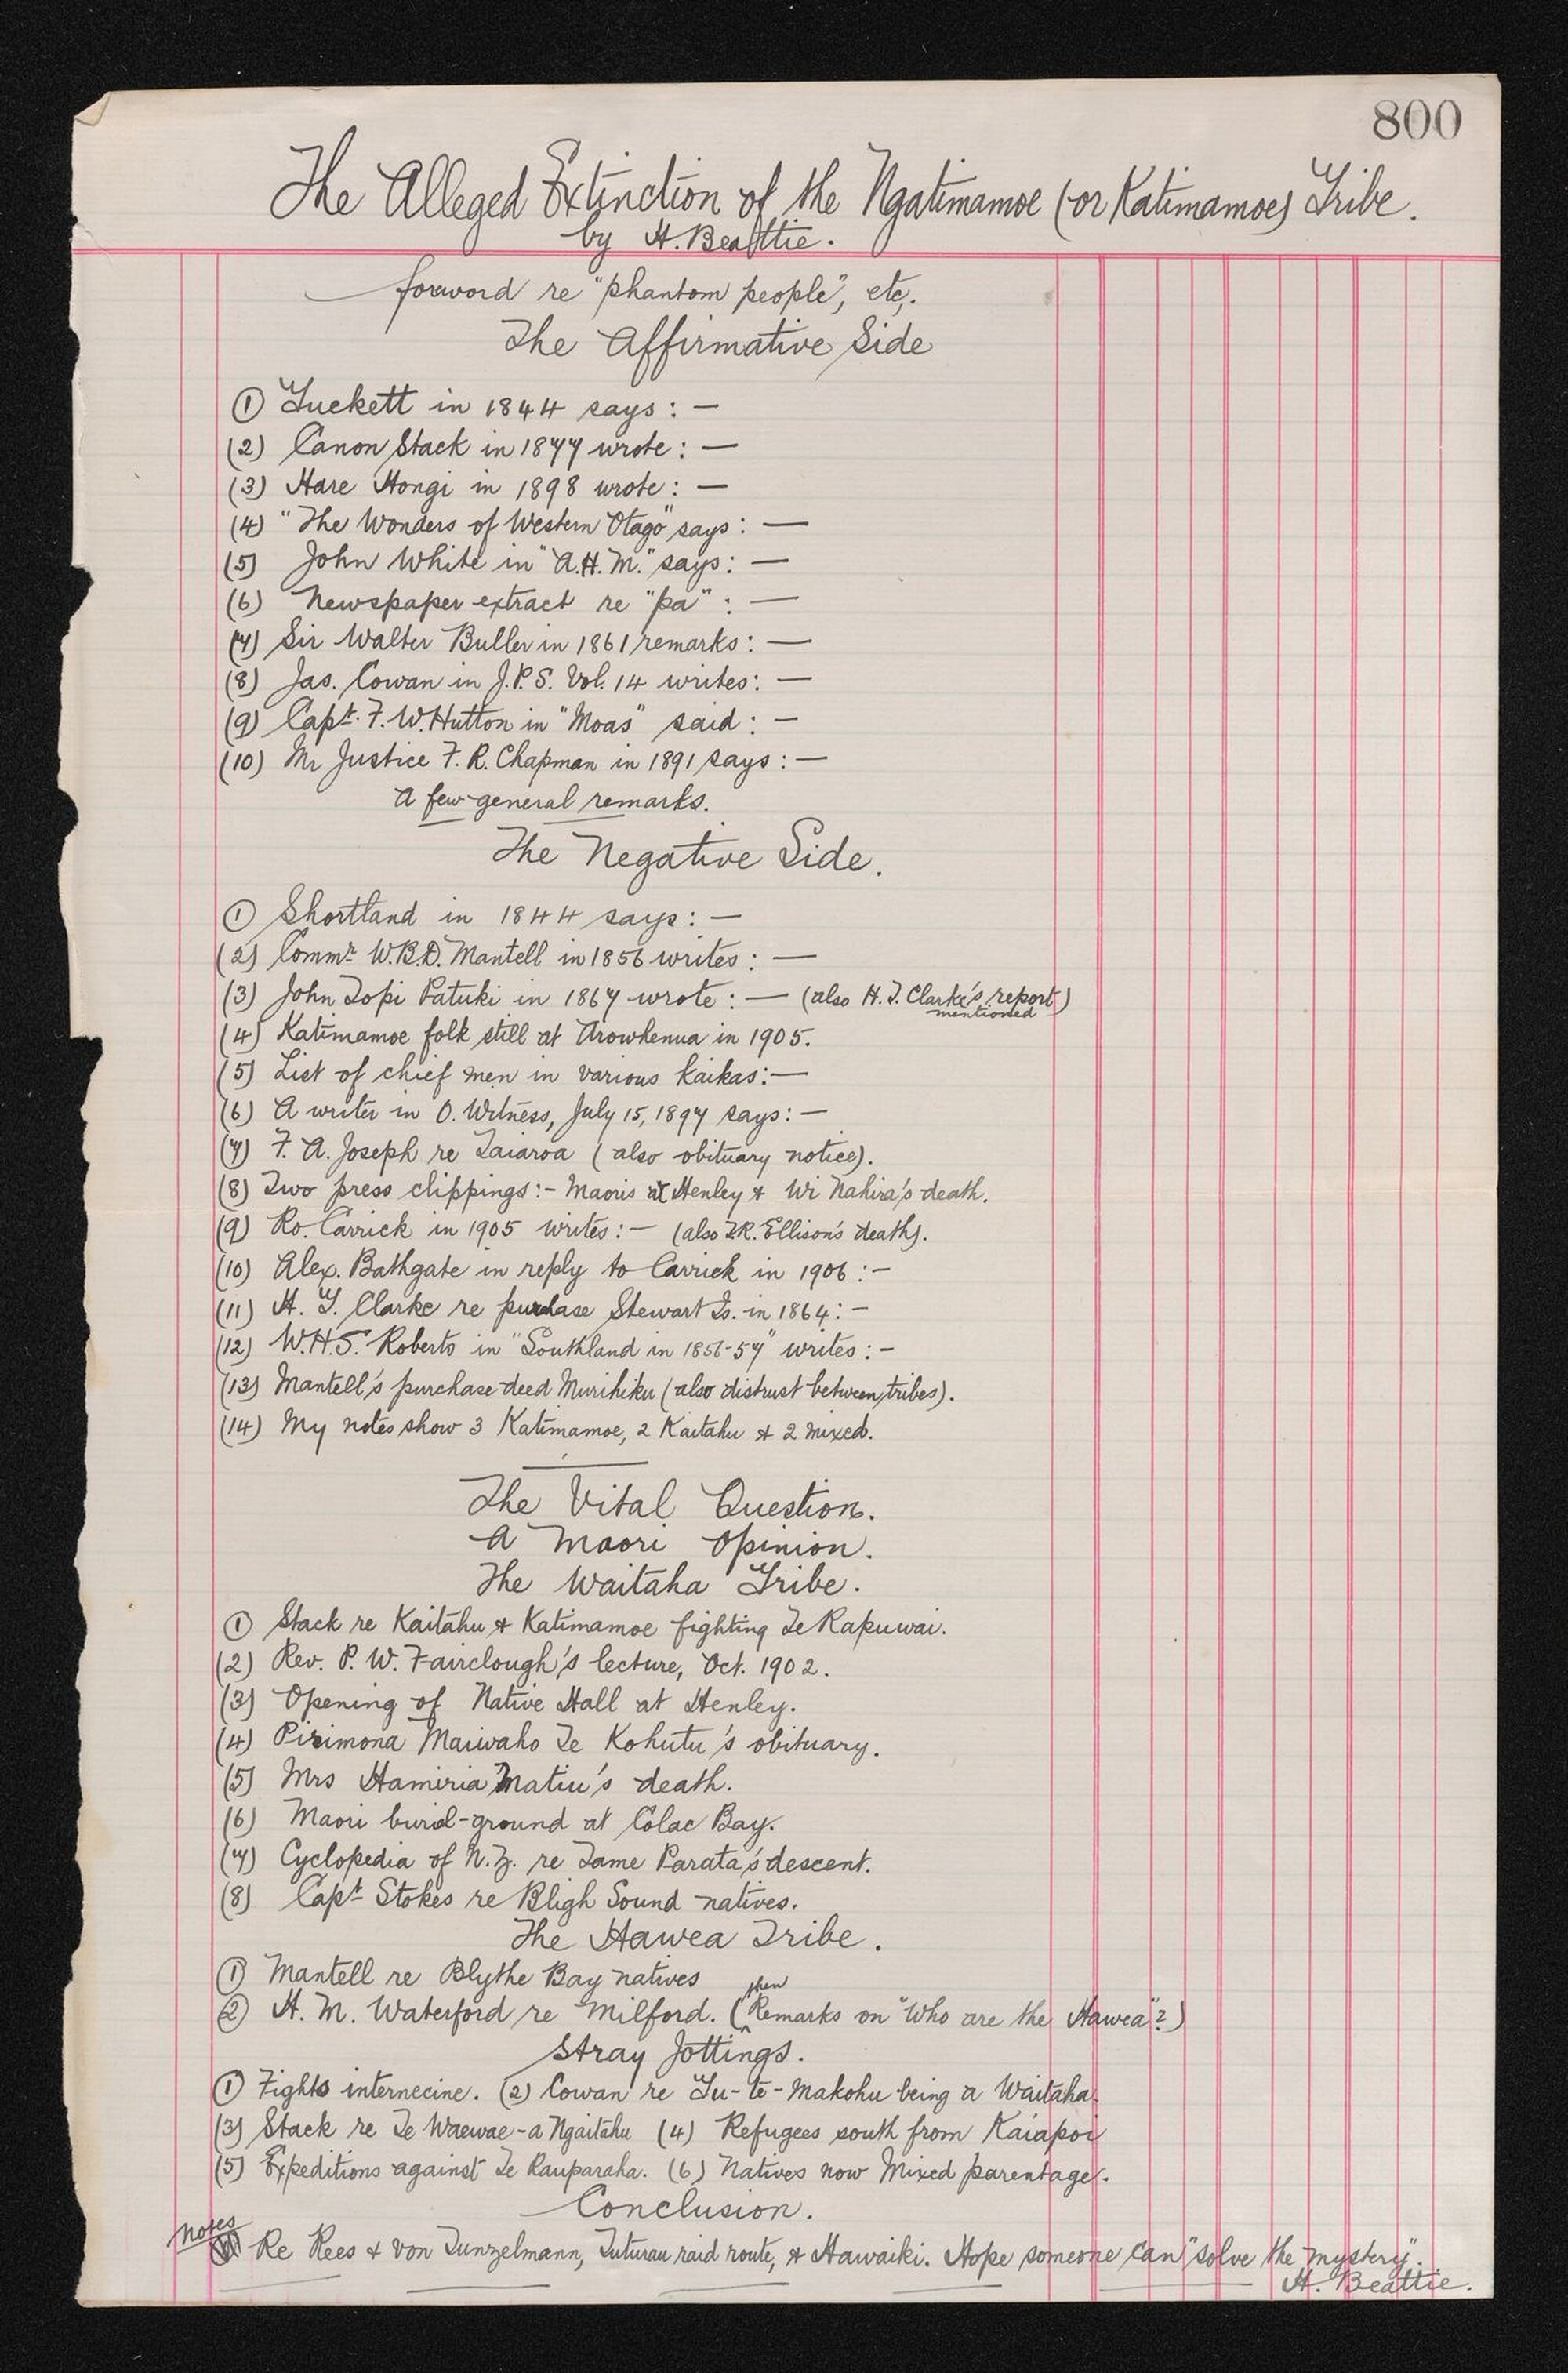 800
The Alleged Extinction of the Ngatimamoe (or Katimamoe) Tribe.
by H. Beattie.
foreword re "phantom people", etc.
The Affirmative Side
(1) Tuckett in 1844 says: —
(2) Canon Stack in 1877 wrote: —
(3) Hare Hongi in 1898 wrote: —
(4) "The Wonders of Western Otago" says: —
(5) John White in "A.H.M." says: —
(6) Newspaper extract re "pa": —
(7) Sir Walter Buller in 1861 remarks: —
(8) Jas. Cowan in J.P.S. Vol. 14 writes: —
(9) Capt. F.W. Hutton in "Moas" said: —
(10) Mr Justice F. R. Chapman in 1891 says: —
A few general remarks.
The Negative Side.
(1) Shortland in 1844 says: —
(2) Commr. W.B.D. Mantell in 1856 writes: —
(3) John Topi Patuki in 1867 wrote: — (also H. T. Clarke's report)
mentioned
(4) Katimamoe folk still at Arowhenua in 1905.
(5) List of chief men in various kaikas: —
(6) A writer in O. Witness, July 15, 1897 says: —
(7) F. A. Joseph re Taiaroa (also obituary notice).
(8) Two press clippings: - Maoris at Henley & Wi Nahira's death.
(9) Ro. Carrick in 1905 writes: — (also T.R. Ellison's death).
(10) Alex. Bathgate in reply to Carrick in 1906: —
(11) H. T. Clarke re purchase Stewart Is. in 1864: —
(12) W.H.S. Roberts in "Southland in 1856-57" writes: —
(13) Mantell's purchase-deed Murihiku (also distrust between tribes).
(14) My notes show 3 Katimamoe, 2 Kaitahu & 2 mixed.
The Vital Question.
A Maori Opinion.
The Waitaha Tribe.
(1) Stack re Kaitahu & Katimamoe fighting Te Rapuwai.
(2) Rev. P. W. Fairclough's lecture, Oct. 1902.
(3) Opening of Native Hall at Henley.
(4) Pirimona Maiwaho Te Kohutu's obituary.
(5) Mrs Hamiria Matiu's death.
(6) Maori burial-ground at Colac Bay.
(7) Cyclopedia of N.Z. re Tame Parata's descent.
(8) Capt. Stokes re Bligh Sound natives.
The Hawea Tribe.
(1) Mantell re Blythe Bay natives
(2) H. M. Waterford re Milford. (then Remarks on "Who are the Hawea"?)
Stray Jottings.
(1) Fights internecine. (2) Cowan re Tu-te-Makohu being a Waitaha.
(3) Stack re Te Waewae - a Ngaitahu (4) Refugees south from Kaiapoi
(5) Expeditions against Te Rauparaha. (6) Natives now Mixed parentage.
Conclusion.
Notes
Re Rees & von Tunzelmann, Tuturau raid route, & Hawaiki. Hope someone can "solve the mystery".
H. Beattie.